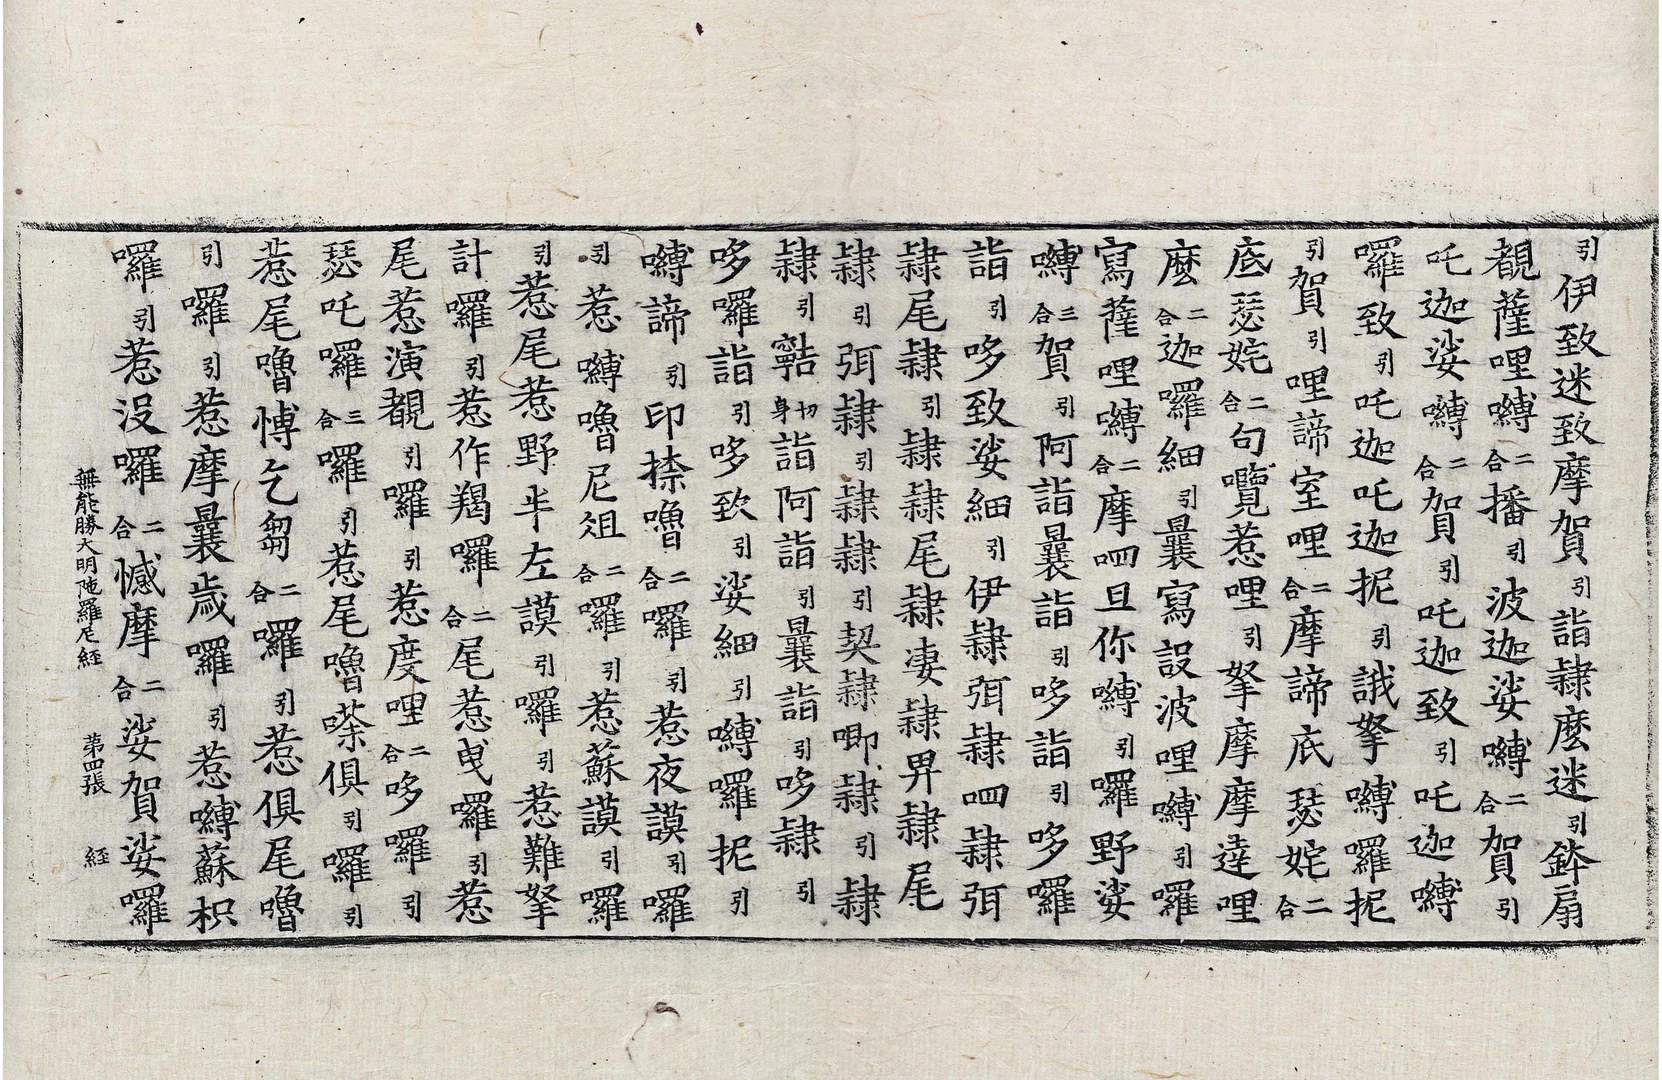 引伊致迷致摩賀引詣隷麽迷引鉢扇
覩薩哩嚩二合播引波迦娑嚩二合賀引
吒迦娑嚩二合賀引吒迦致引吒迦嚩
囉致引吒迦吒迦抳引誐拏嚩囉抳
引賀引哩諦室哩二合摩諦底瑟姹二合
底瑟姹二合句嚂惹哩引拏摩摩達哩
麽二合迦囉細引曩寫設波哩嚩引囉
寫薩哩嚩二合摩呬旦你嚩引囉野娑
嚩三合賀引阿詣曩詣引哆詣引哆囉
詣引哆致娑細引伊隷弭隷呬隷弭
隷尾隷引隷隷尾隷凄隷畀隷尾
隷引弭隷引隷隷引契隷唧隷引隷
隷引𪗨切身詣阿詣引曩詣引哆隷引
哆囉詣引哆致引娑細引嚩囉抳引
嚩諦引印捺嚕二合囉引惹夜謨引囉
引惹嚩嚕尼俎二合囉引惹蘇謨引囉
引惹尾惹野半左謨引囉引惹難拏
計囉引惹作羯囉二合尾惹曵囉引惹
尾惹演覩引囉引惹度哩二合哆囉引
瑟吒囉三合囉引惹尾嚕荼俱引囉引
惹尾嚕愽乞芻二合囉引惹俱尾嚕
引囉引惹摩曩歲囉引惹嚩蘇枳
囉引惹沒囉二合憾摩二合娑賀娑囉
無能勝大明陁羅尼經　第四張　經